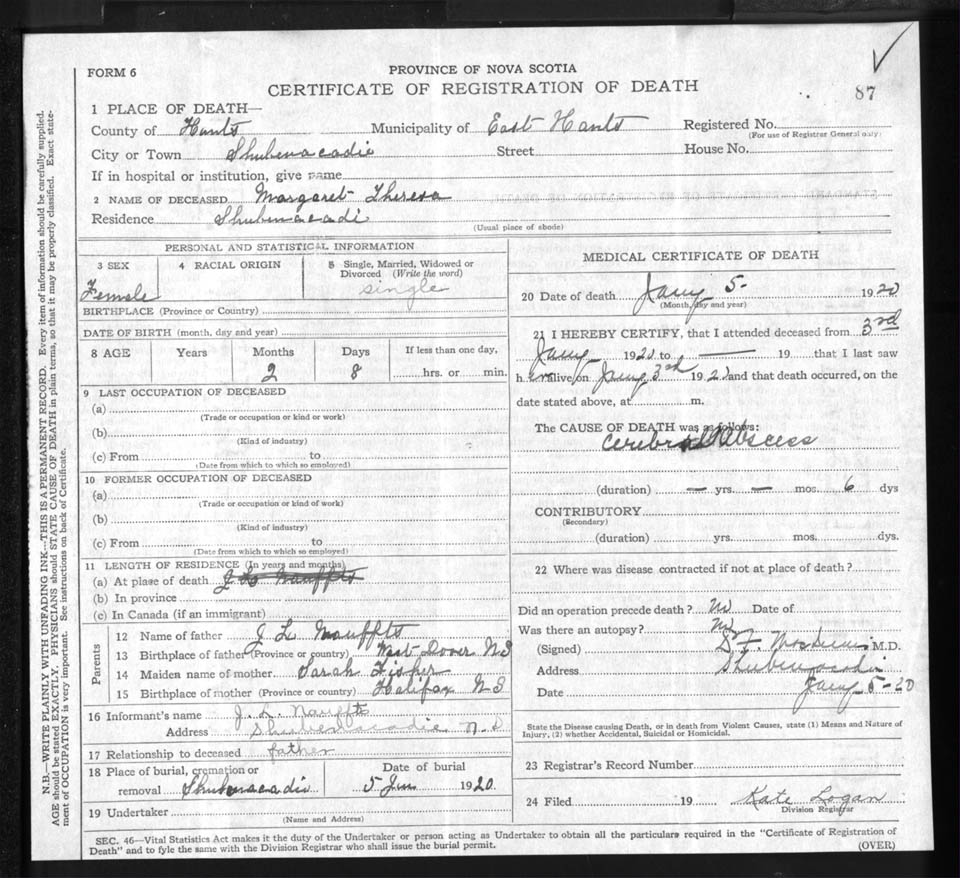 FORM 6
PROVINCE OF NOVA SCOTIA
CERTIFICATE OF REGISTRATION OF DEATH
87
1 PLACE OF DEATH—
County of Hants Municipality of East Hants Registered No.
(For use of Registrar General only)
City or Town Shubenacadie Street House No.
If in hospital or institution, give name
2 NAME OF DECEASED Margaret Theresa
Residence Shubenacadi
(Usual place of abode)
PERSONAL AND STATISTICAL INFORMATION
3 SEX 4 RACIAL ORIGIN 5 Single, Married, Widowed or Divorced (Write the word)
Female single
BIRTHPLACE (Province or Country)
DATE OF BIRTH (month, day and year)
8 AGE Years Months Days If less than one day,
2 8 hrs. or min.
9 LAST OCCUPATION OF DECEASED
(a)
(Trade or occupation or kind or work)
(b)
(Kind of industry)
(c) From to
(Date from which to which so employed)
10 FORMER OCCUPATION OF DECEASED
(a)
(Trade or occupation or kind of work)
(b)
(Kind of industry)
(c) From to
(Date from which to which so employed)
11 LENGTH OF RESIDENCE (In years and months)
(a) At place of death
(b) In province
(c) In Canada (if an immigrant)
Parents
12 Name of father J L Nauffts
13 Birthplace of father (Province or country) West Dover N S
14 Maiden name of mother Sarah Fisher
15 Birthplace of mother (Province or country) Halifax N S
16 Informant's name J. L. Nauffts
Address Shubenacadie N.S
17 Relationship to deceased father
18 Place of burial, cremation or Date of burial
removal Shubenacadie 5 Jan 1920
19 Undertaker
(Name and Address)
MEDICAL CERTIFICATE OF DEATH
20 Date of death Jany 5- 1920
(Month, day and year)
21 I HEREBY CERTIFY, that I attended deceased from 3rd
Jany 1920 to — 19 that I last saw
h er alive on Jany 3rd 192 and that death occurred, on the
date stated above, at m.
The CAUSE OF DEATH was as follows:
Cerebral Abscess
(duration) — yrs. — mos. 6 dys
CONTRIBUTORY
(Secondary)
(duration) yrs. mos. dys.
22 Where was disease contracted if not at place of death?
Did an operation precede death? No Date of
Was there an autopsy? No
(Signed) M.D.
Address Shubenacadie
Date Jany 5-20
State the Disease causing Death, or in death from Violent Causes, state (1) Means and Nature of
Injury, (2) whether Accidental, Suicidal or Homicidal.
23 Registrar's Record Number
24 Filed 19 Kate Logan
Division Registrar
SEC. 46—Vital Statistics Act makes it the duty of the Undertaker or person acting as Undertaker to obtain all the particulars required in the "Certificate of Registration of
Death" and to fyle the same with the Division Registrar who shall issue the burial permit.
(OVER)
N.B.—WRITE PLAINLY WITH UNFADING INK—THIS IS A PERMANENT RECORD. Every item of information should be carefully supplied.
AGE should be stated EXACTLY. PHYSICIANS should STATE CAUSE OF DEATH in plain terms, so that it may be properly classified. Exact state-
ment of OCCUPATION is very important. See instructions on back of Certificate.